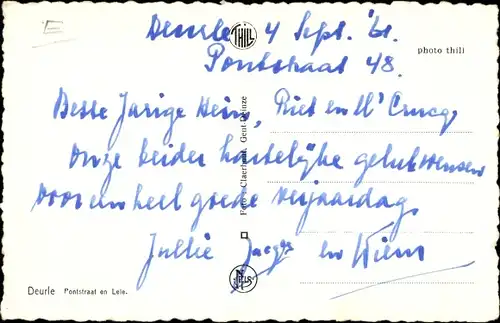 E
Deurle 4 Sept. '61.
THILL
photo thill
Pontstraat 48.
Beste Jarige Hein, Riet en
Onze beider hartelijke gelukwensen
voor een heel goede verjaardag,
Jullie en Wiem
Foto's Claerhout, Gent-Deinze
NELS
Deurle Pontstraat en Leie.